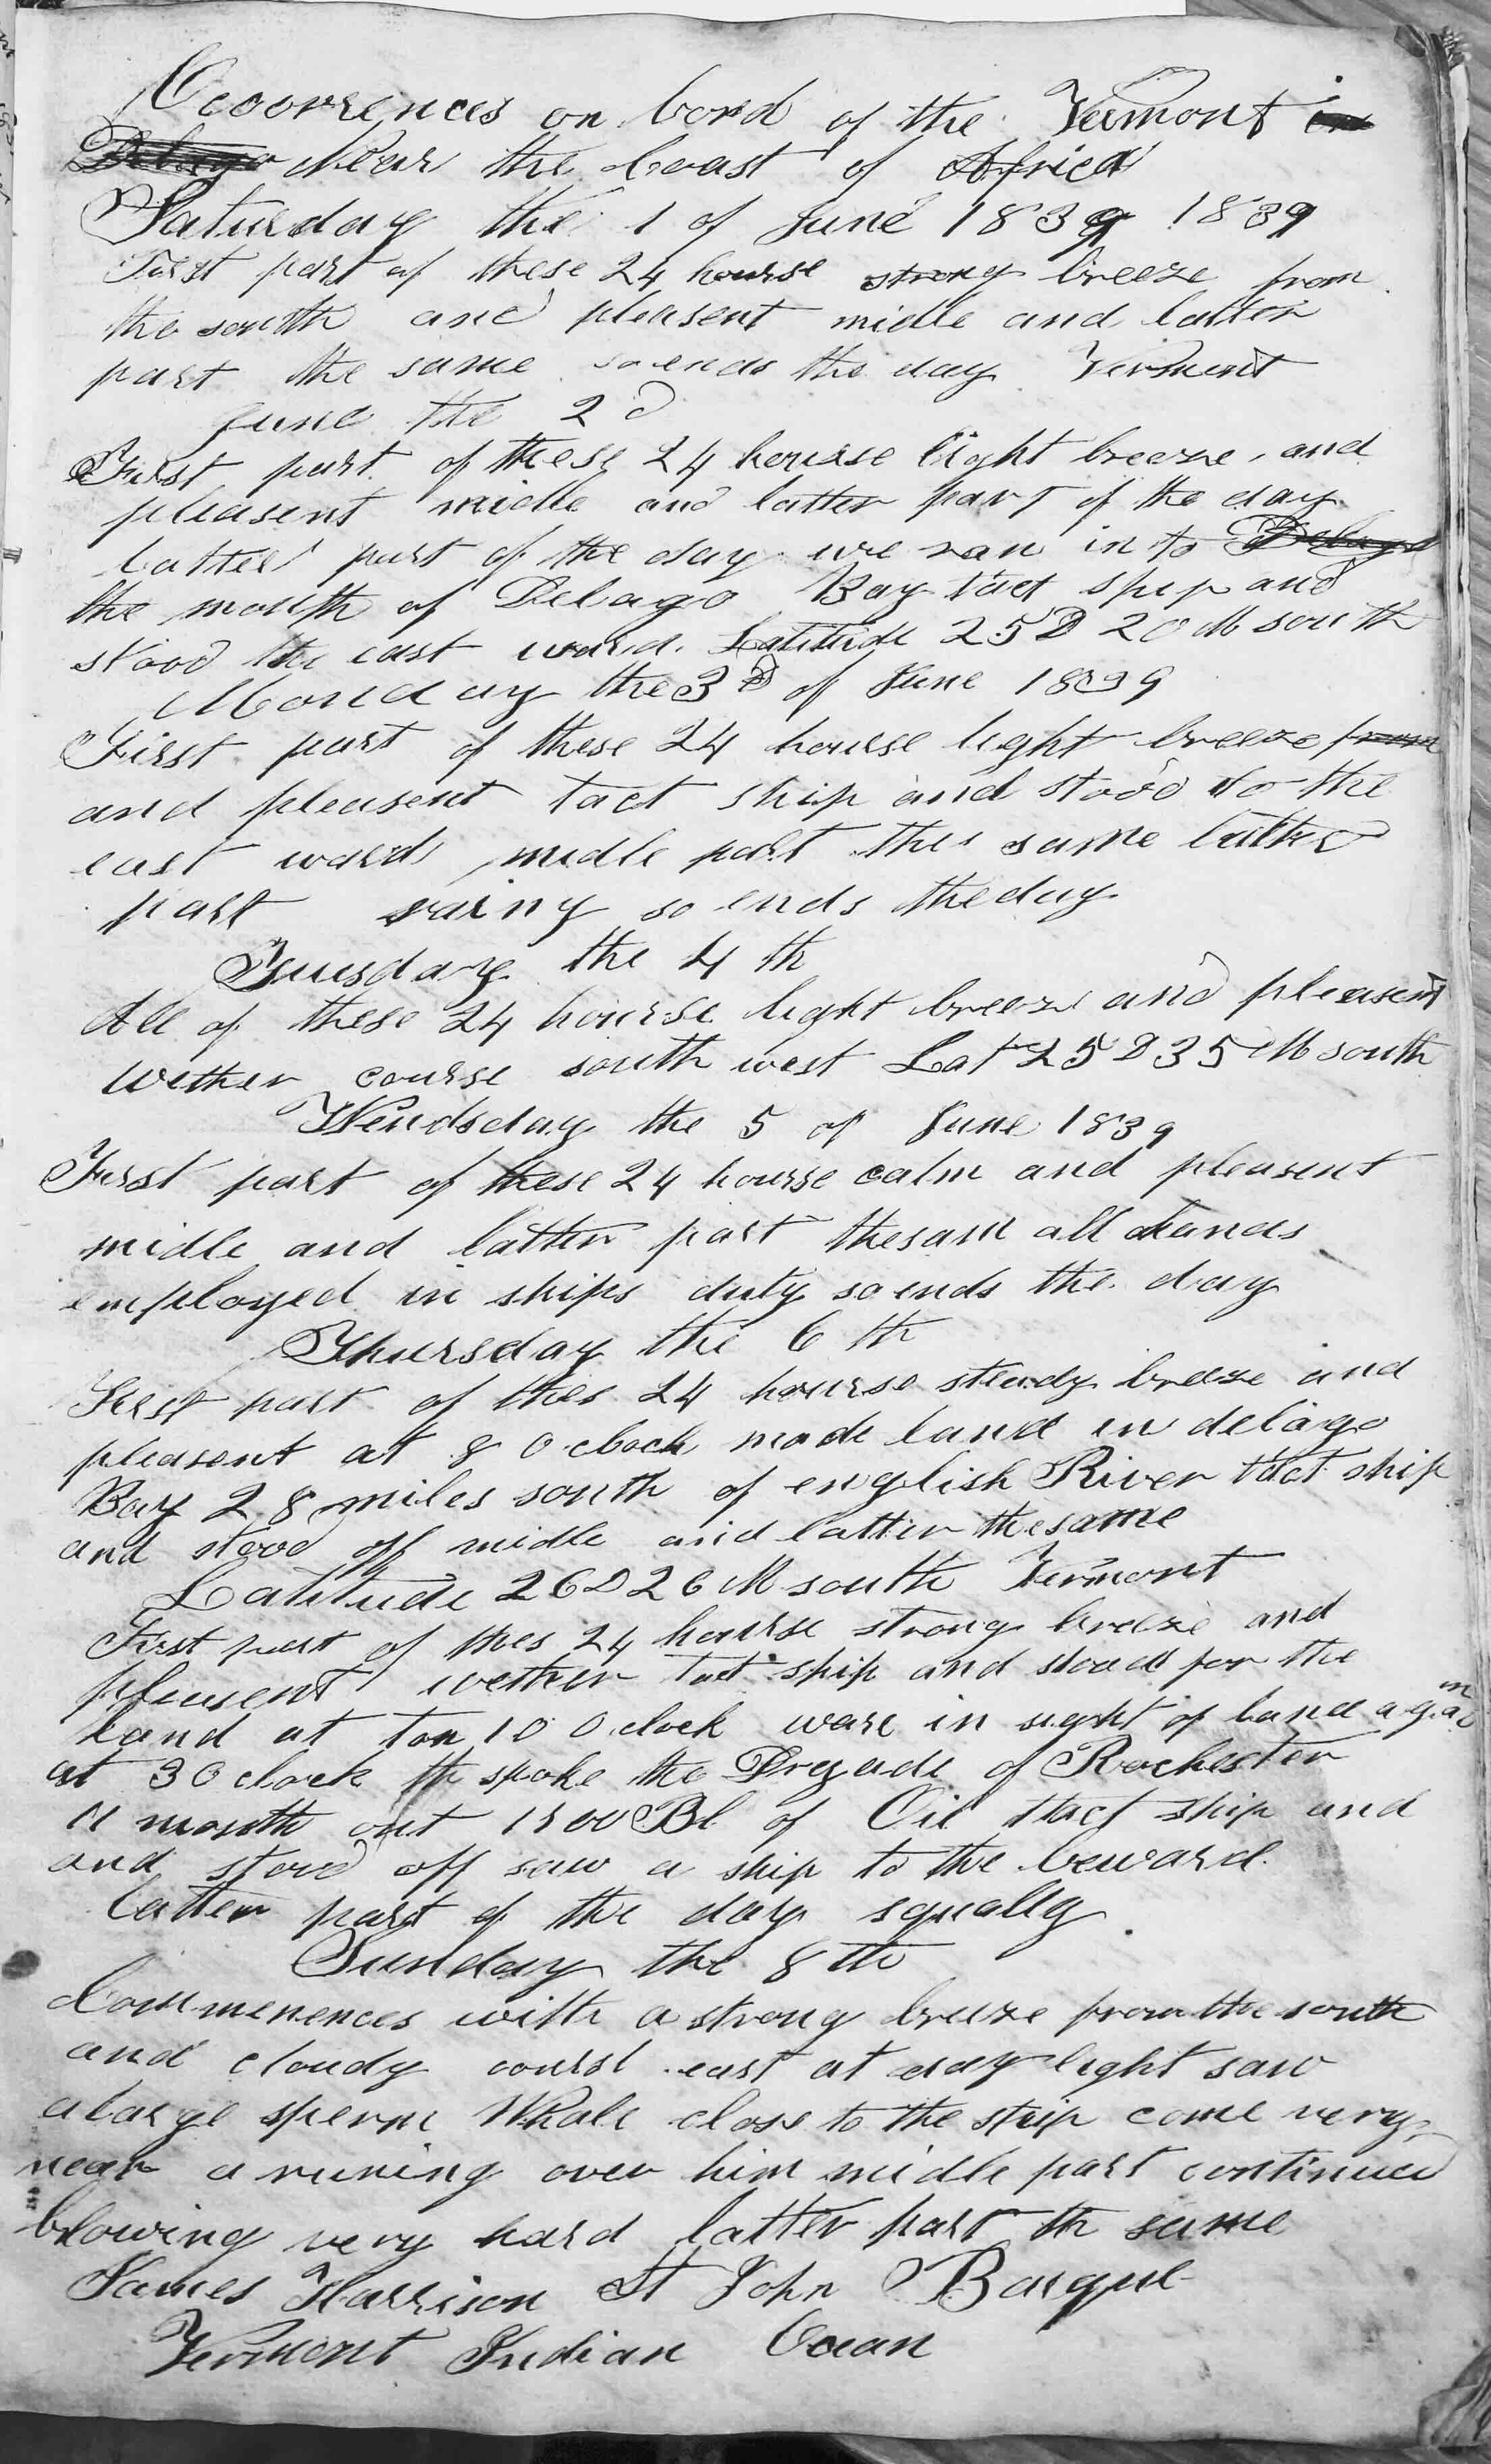 Occovrences on bord of the Vermont in
Delago Near the Coast of Africa
Saturday the 1 of June 1839 1839
First part of these 24 hourse strong breeze from
the south and pleasent midle and latter
part the same so ends the day Vermont
June the 2d
First part of these 24 hourse light breeze and
pleasent midle and latter part of the day
latter part of the day we ran in to Delago
the mouth of Delago Bay tact ship and
stood the east ward. Latitude 25 D 20 M south
Monday the 3d of June 1839
First part of these 24 hourse light breeze from
and pleasent tact ship and stood to the
east wards midle part the same latter
part rainy so ends the day
Tuesday the 4 th
All of these 24 hourse light breeze and pleasent
wether course south west Lat 25 D 35 M south
Wendsday the 5 of June 1839
First part of these 24 hourse calm and pleasent
midle and latter part the sam all hands
employed in ships duty so ends the day
Thursday the 6 th
First part of thes 24 hourse steady breeze and
pleasent at 8 O clock made land in delago
Bay 28 miles south of english River tact ship
and stood off midle and latter the same
Latitude 26 D 26 M south Vermont
First part of thes 24 hourse strong breeze and
pleasent wether tact ship and stood for the
land at ten 10 O clock ware in sight of land again
at 3 O clock spoke the Dryade of Rochester
11 month out 1800 Bl of Oil tact ship and
and stood off saw a ship to the leward.
latter part of the day squally
Sunday the 8 th
Commenences with a strong breeze from the south
and cloudy course east at day light saw
a large sperm Whale close to the ship come very
near a runing over him midle part continued
blowing very hard latter part th same
James Harrison St John Barque
Vermont Indian Ocean